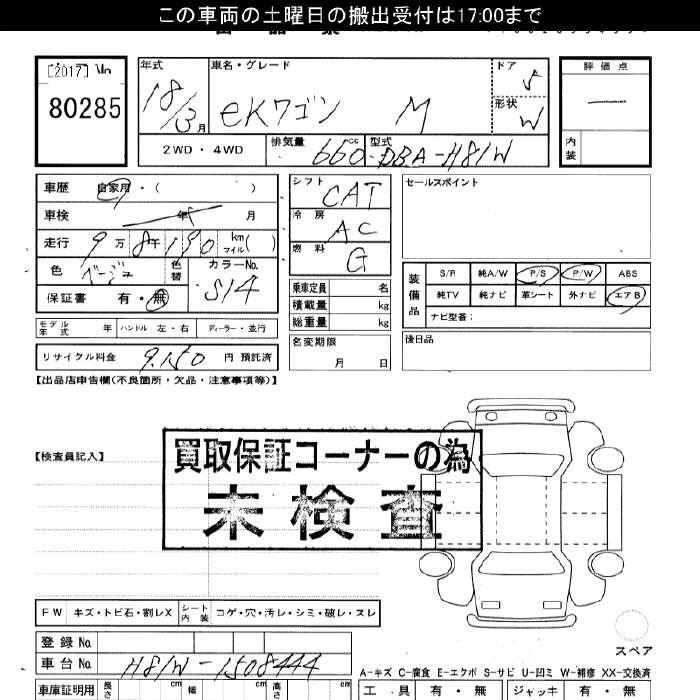 この車両の土曜日の搬出受付は17:00まで
[2017] No
80285
年式 18/3月
車名・グレード eKワゴン M
ドア 5
形状 W
評価点
内装
2WD・4WD
排気量 660cc
型式 DBA-H81W
車歴 自家用・( )
車検 年 月
走行 9万8千190 km マイル( )
色 ベージュ 色替 カラーNo. S14
保証書 有・無
シフト CAT
冷房 AC
燃料 G
乗車定員 名
積載量 kg
総重量 kg
セールスポイント
装備品
S/R 純A/W P/S P/W ABS
純TV 純ナビ 革シート 外ナビ エアB
ナビ型番:
モデル年式 年 ハンドル 左・右 ディーラー・並行
名変期限 月 日
後日品
リサイクル料金 9,150 円 預託済
【出品店申告欄(不良箇所・欠品・注意事項等)】
【検査員記入】
買取保証コーナーの為
未検査
FW キズ・トビ石・割レX シート内装 コゲ・穴・汚レ・シミ・破レ・スレ
スペア
登録No
車台No H81W-1508444
A-キズ C-腐食 E-エクボ S-サビ U-凹ミ W-補修 XX-交換済
車庫証明用 長さ cm 幅 cm 高さ cm
工具 有・無 ジャッキ 有・無